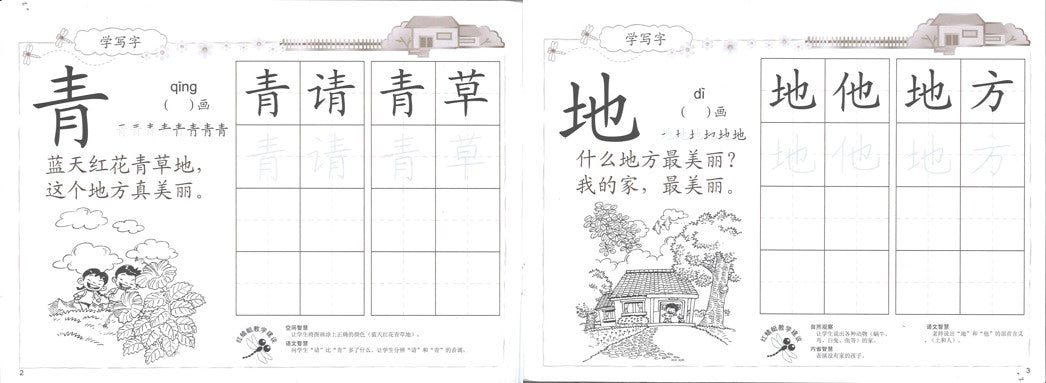 学写字
青
qīng
( )画
青青青
蓝天红花青草地，
这个地方真美丽。
青 请 青 草
青 请 青 草
红蜻蜓教学建议
空间智慧
让学生将图画涂上正确的颜色（蓝天红花青草地）。
语文智慧
问学生“请”比“青”多了什么，让学生分辨“请”和“青”的音调。
2
学写字
地
dì
( )画
地地
什么地方最美丽？
我的家，最美丽。
地 他 地 方
地 他 地 方
红蜻蜓教学建议
自然观察
让学生说出各种动物（蜗牛、
鸟、白兔、鱼等）的家。
内省智慧
表演没有家的孩子。
语文智慧
老师说出“地”和“他”的部首含义
（土和人）。
3